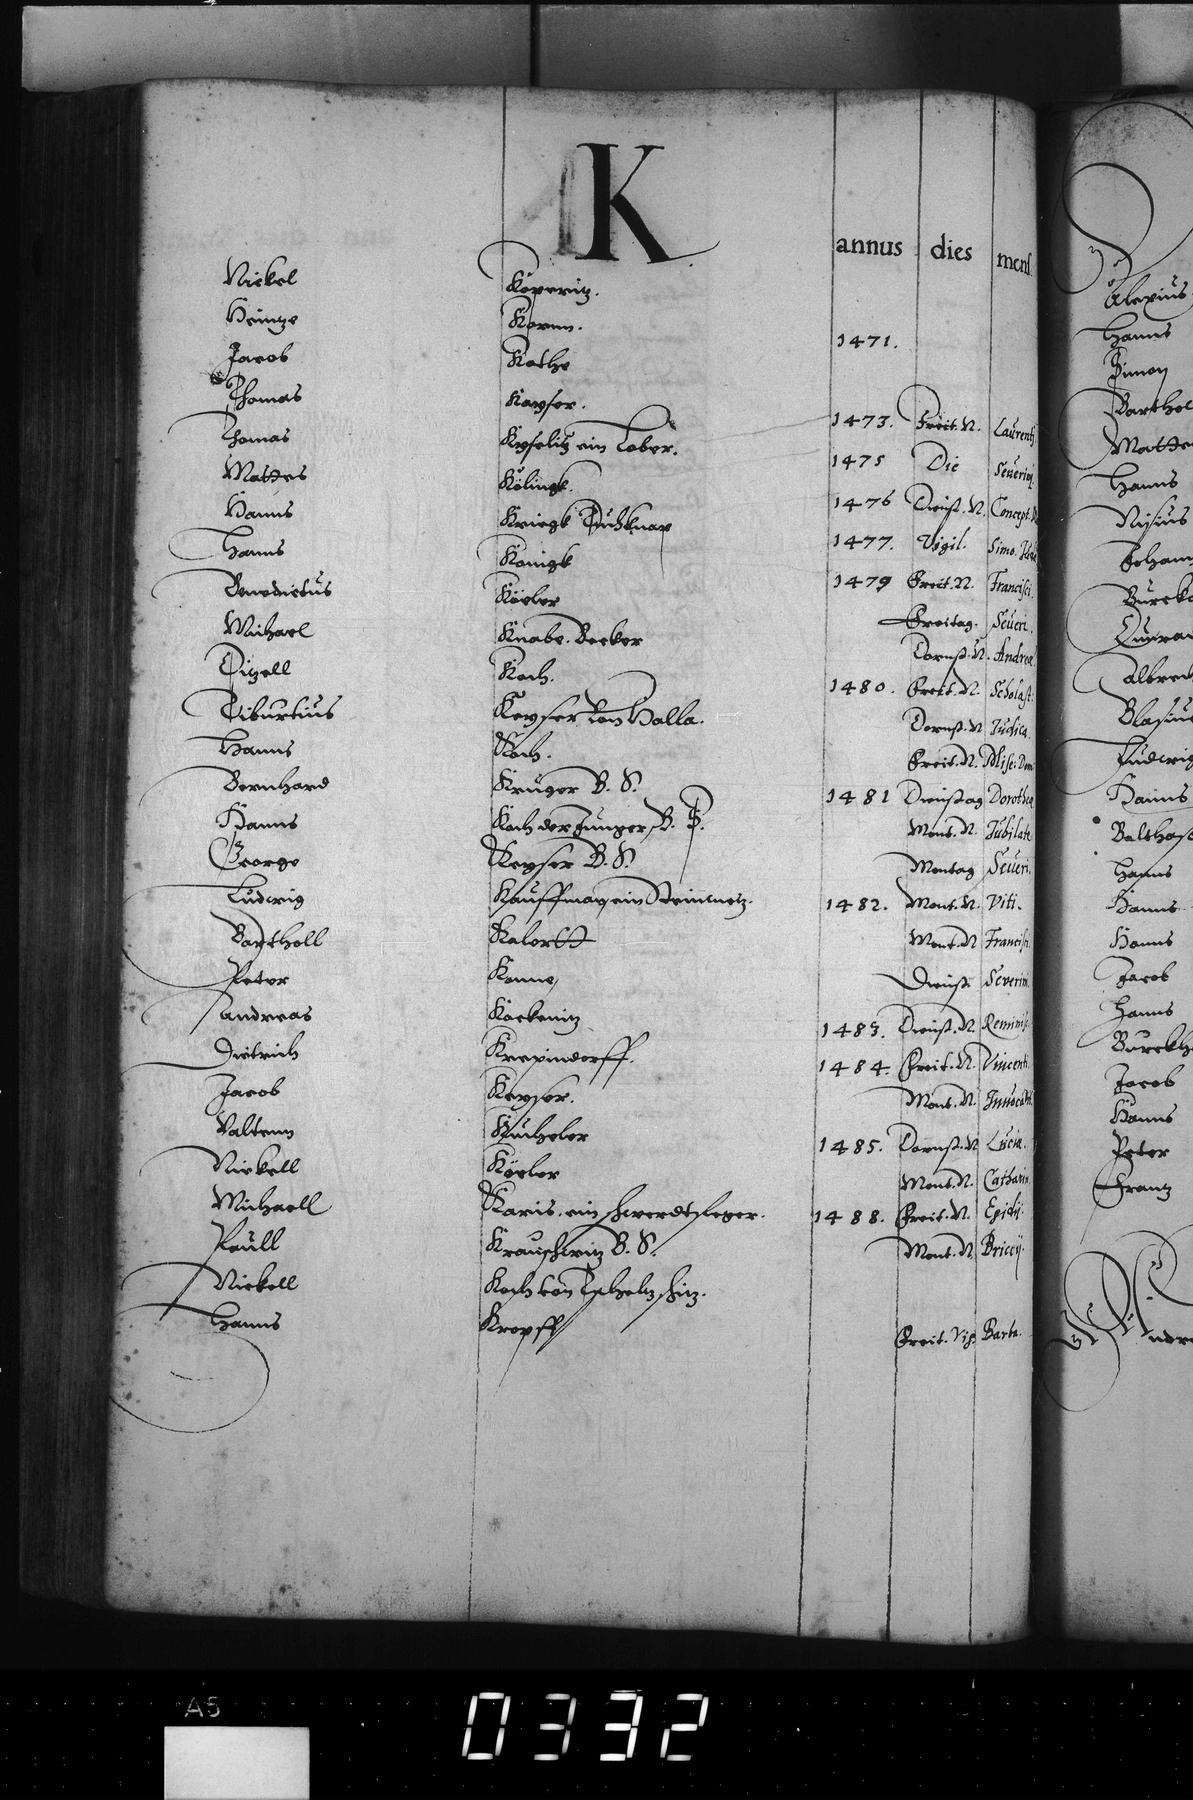 K
annus dies mens.
NickelKöperitz.
Heintze Kornn.
Jacob Kothe 1471.
Thomas Kayser.
Thomas Kyselitz ein Lober. 1473. Freit. N. Laurentij
Mattes Kölingk. 1475 Die Seuerini
Hanns Kriegk Tuchknap 1476 Dienst. N. Concept. M
Hanns Konigk 1477. Vigil. Simo. Jude
Benedictus Köeler 1479 Freit. N. Francisci.
Michael Knabe. Becker Freitag. Seueri.
Ditzell Koch. Dornst. N. Andreæ
Tiburtius Keyser von Halla. 1480. Freit. N. Scholast.
Hanns Koch. Dornst. N Judica.
Bernhard Kruger B. S. Freit. N. Mise. Dom
Hanns Koch der Junger B. S. 1481 Dienstag Dorothea
George Keyser B. S. Mont. N. Jubilate
Ludwig Kauffman ein Steinmetz. Montag Seueri.
Bartholl Kalertt 1482. Mont. N. Viti.
Peter Konne Mont. N Francisci.
Andreas Kockenitz Dienst. Severini
Dietrich Krepindorff. 1483. Dienst. N. Reminis.
Jacob Keyser. 1484. Freit. N. Vincenti.
Valtenn Kucheler Mont. N. Inuocauit
Nickell Köeler 1485. Dornst. N Lucia.
Michaell Karis. ein schwerdtfeger. Mont. N. Catharin.
Paull Krauschwitz B. S. 1488. Freit. N. Egidij.
Nickell Koch von Mont. N. Briccij.
Hanns Kropff Freit. Vig. Barba.
Alexius
Hanns
Simon
Barthol
Mattes
Hanns
Nisius
Johann
Burckh
Albrecht
Blasius
Ludwig
Hanns
Balthasa
Hanns
Hanns
Hanns
Jacob
Hanns
Burckh
Jacob
Hanns
Peter
Frantz
Andre
A5
0332